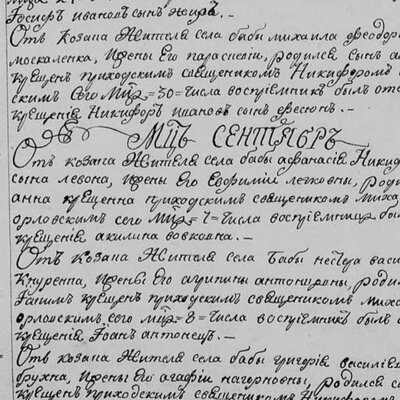 Госифъ ивановъ сынъ жиръ. –
Отъ козака жителя села бабы михаила феодоро
москаленка, ирены его параскевии, родился сынъ
крещенъ приходскимъ священикомъ Никифоромъ
скимъ сего мцᲂ = 30 = числа восприемникъ былъ отъ
крещения Никифоръ ивановъ сынъ фесюнъ. –
МЦЪ СЕНТЯБРЪ
Отъ козака жителя села бабы афанасия Никифо
сына левона, ирены его евфимии легковны, роди
анна крещенна приходскимъ священикомъ миха
орловскимъ сего мцᲂ = 1 = числа восприемница была
крещения акилина вовковна. –
Отъ козака жителя села бабы нестера васи
Кнуренка, ирены его агрипины антонцовны, роди
крещенъ приходскимъ священикомъ миха
орловскимъ сего мцᲂ = 8 = числа восприемникъ былъ
крещения Іоанъ антонецъ. –
Отъ козака жителя села бабы григория василие
брухна, ирены его агафии нагорновны, родился
крещенъ приходскимъ священикомъ Никифоромъ